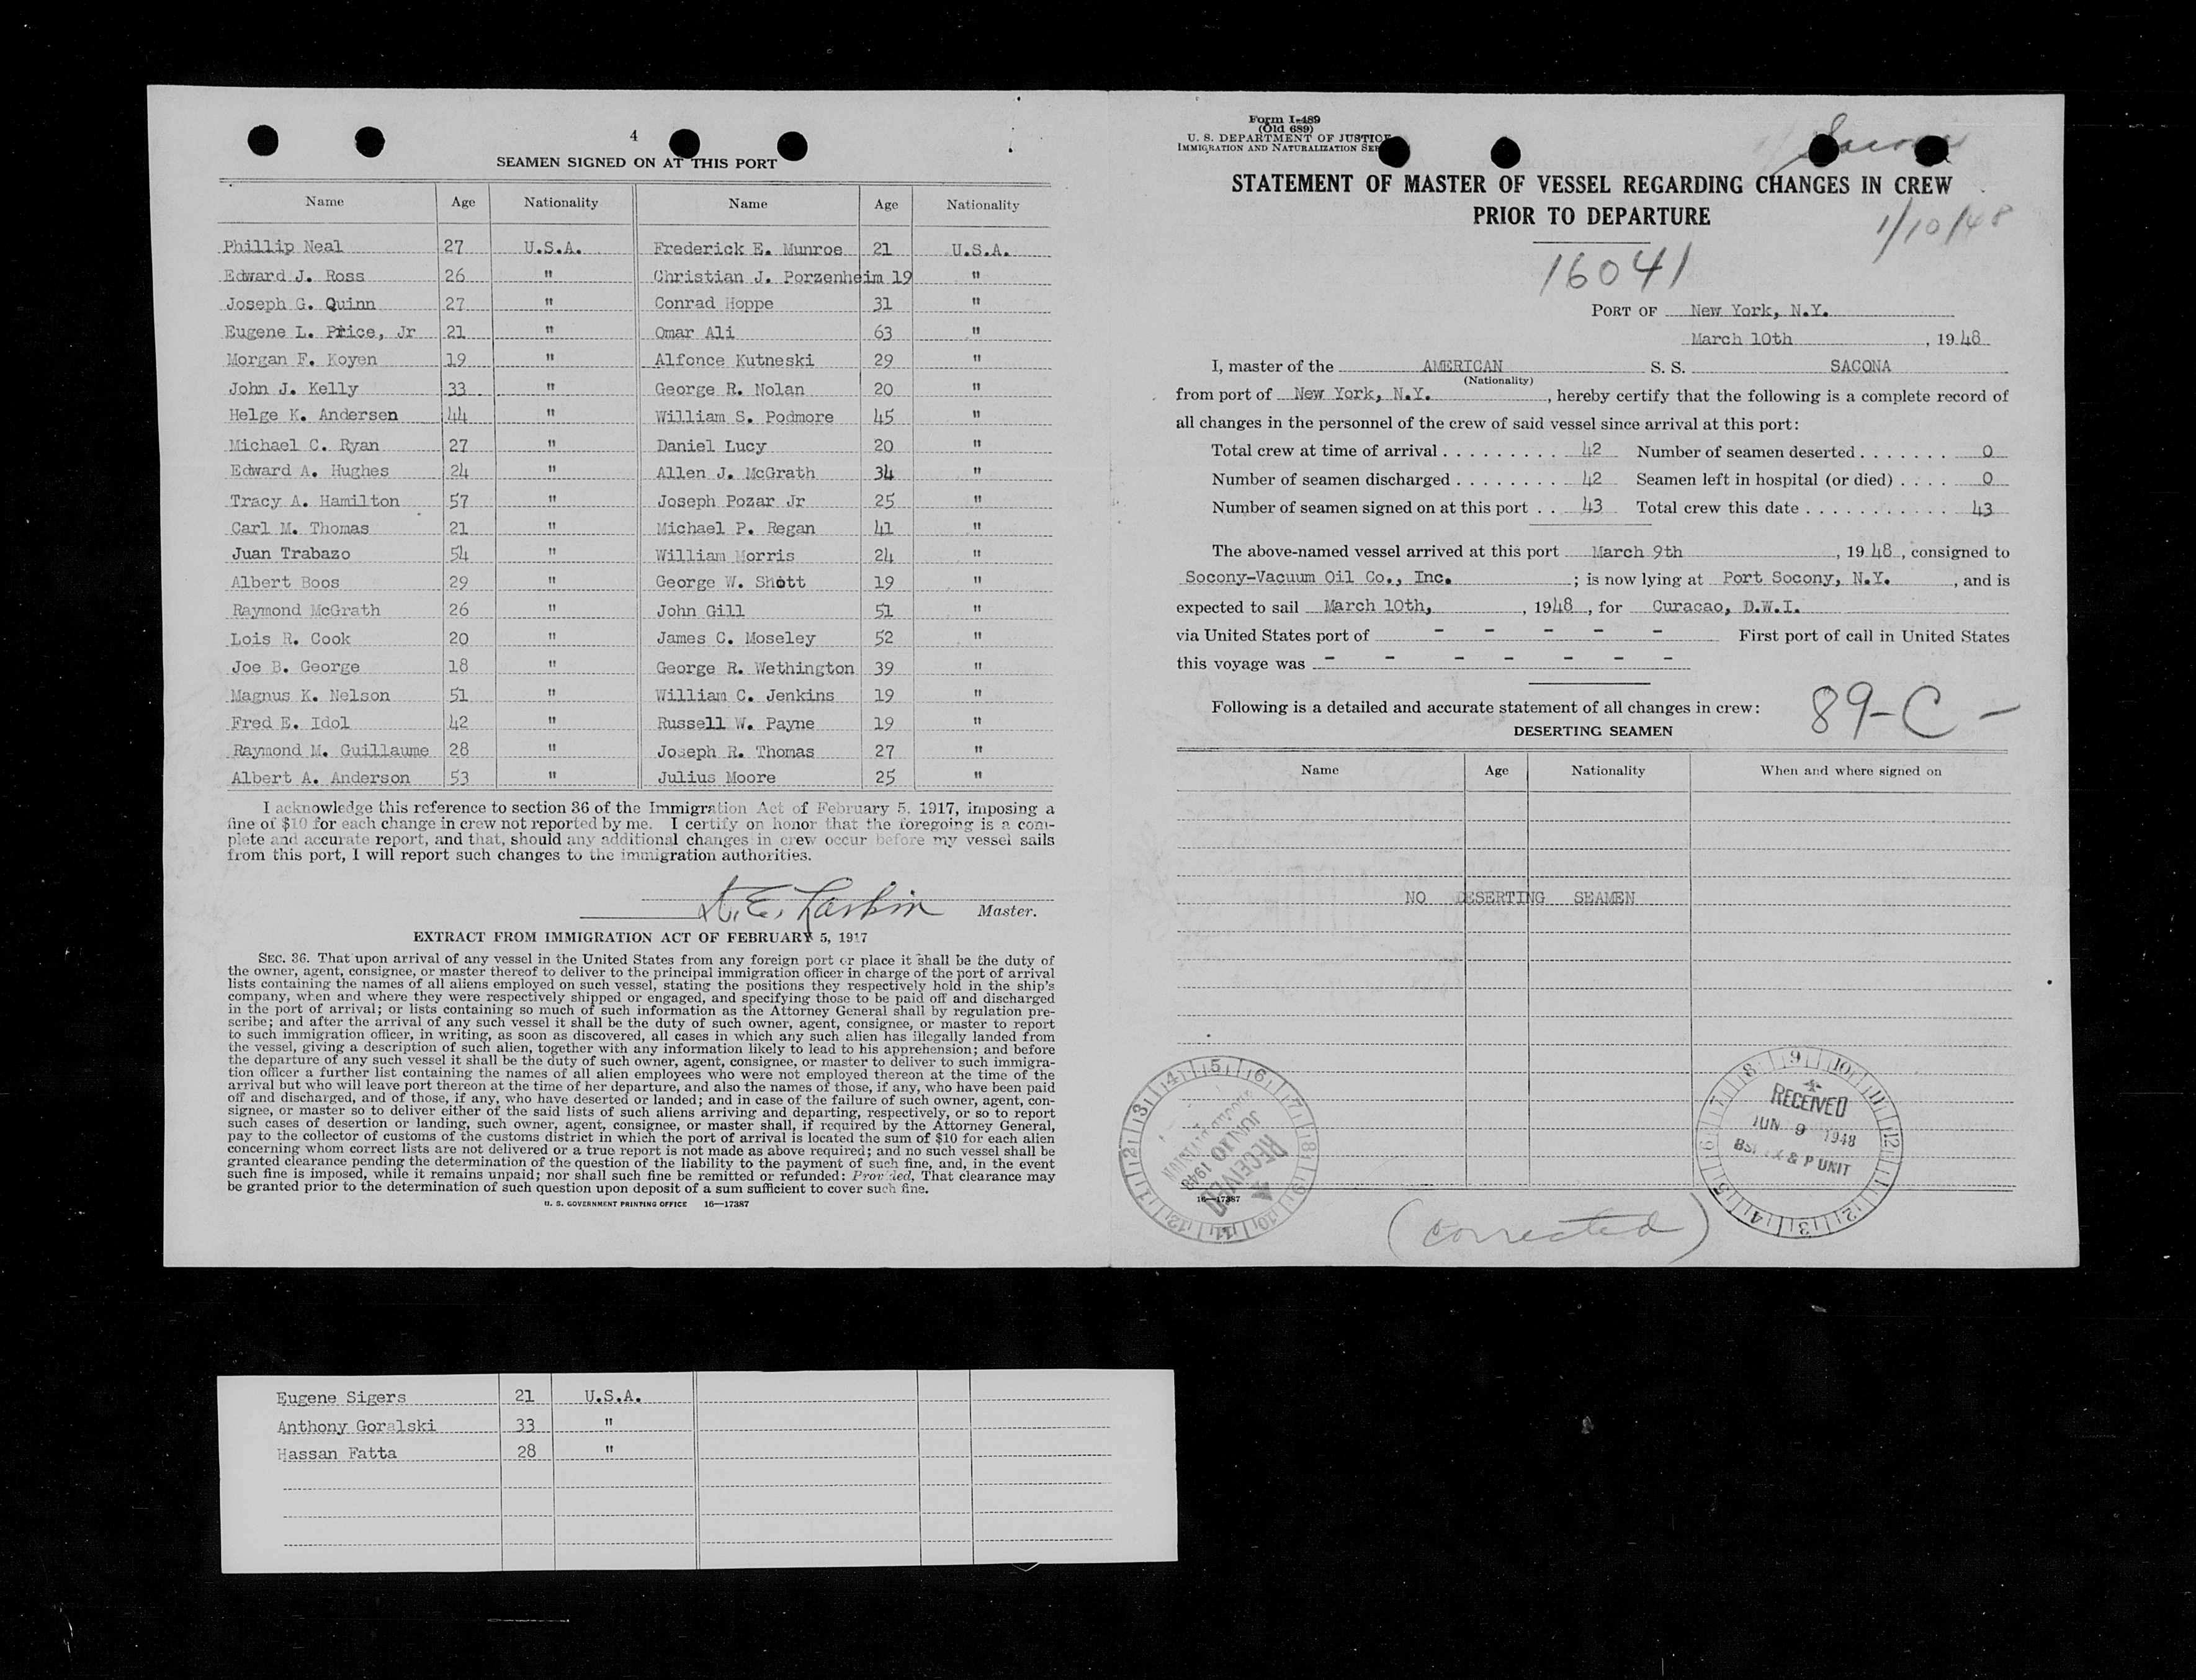 4
SEAMEN SIGNED ON AT THIS PORT
Name Age Nationality Name Age Nationality
Phillip Neal 27 U.S.A. Frederick E. Munroe 21 U.S.A.
Edward J. Ross 26 " Christian J. Porzenheim 19 "
Joseph G. Quinn 27 " Conrad Hoppe 31 "
Eugene L. Price, Jr 21 " Omar Ali 63 "
Morgan F. Koyen 19 " Alfonce Kutneski 29 "
John J. Kelly 33 " George R. Nolan 20 "
Helge K. Andersen 44 " William S. Podmore 45 "
Michael C. Ryan 27 " Daniel Lucy 20 "
Edward A. Hughes 24 " Allen J. McGrath 34 "
Tracy A. Hamilton 57 " Joseph Pozar Jr 25 "
Carl M. Thomas 21 " Michael P. Regan 41 "
Juan Trabazo 54 " William Morris 24 "
Albert Boos 29 " George W. Shott 19 "
Raymond McGrath 26 " John Gill 51 "
Lois R. Cook 20 " James C. Moseley 52 "
Joe B. George 18 " George R. Wethington 39 "
Magnus K. Nelson 51 " William C. Jenkins 19 "
Fred E. Idol 42 " Russell W. Payne 19 "
Raymond M. Guillaume 28 " Joseph R. Thomas 27 "
Albert A. Anderson 53 " Julius Moore 25 "
I acknowledge this reference to section 36 of the Immigration Act of February 5, 1917, imposing a
fine of $10 for each change in crew not reported by me. I certify on honor that the foregoing is a com-
plete and accurate report, and that, should any additional changes in crew occur before my vessel sails
from this port, I will report such changes to the immigration authorities.
E. Larkin Master.
EXTRACT FROM IMMIGRATION ACT OF FEBRUARY 5, 1917
SEC. 36. That upon arrival of any vessel in the United States from any foreign port or place it shall be the duty of
the owner, agent, consignee, or master thereof to deliver to the principal immigration officer in charge of the port of arrival
lists containing the names of all aliens employed on such vessel, stating the positions they respectively hold in the ship's
company, when and where they were respectively shipped or engaged, and specifying those to be paid off and discharged
in the port of arrival; or lists containing so much of such information as the Attorney General shall by regulation pre-
scribe; and after the arrival of any such vessel it shall be the duty of such owner, agent, consignee, or master to report
to such immigration officer, in writing, as soon as discovered, all cases in which any such alien has illegally landed from
the vessel, giving a description of such alien, together with any information likely to lead to his apprehension; and before
the departure of any such vessel it shall be the duty of such owner, agent, consignee, or master to deliver to such immigra-
tion officer a further list containing the names of all alien employees who were not employed thereon at the time of the
arrival but who will leave port thereon at the time of her departure, and also the names of those, if any, who have been paid
off and discharged, and of those, if any, who have deserted or landed; and in case of the failure of such owner, agent, con-
signee, or master so to deliver either of the said lists of such aliens arriving and departing, respectively, or so to report
such cases of desertion or landing, such owner, agent, consignee, or master shall, if required by the Attorney General,
pay to the collector of customs of the customs district in which the port of arrival is located the sum of $10 for each alien
concerning whom correct lists are not delivered or a true report is not made as above required; and no such vessel shall be
granted clearance pending the determination of the question of the liability to the payment of such fine, and, in the event
such fine is imposed, while it remains unpaid; nor shall such fine be remitted or refunded: Provided, That clearance may
be granted prior to the determination of such question upon deposit of a sum sufficient to cover such fine.
U. S. GOVERNMENT PRINTING OFFICE 16—17387
Form I-489
(Old 689)
U. S. DEPARTMENT OF JUSTICE
IMMIGRATION AND NATURALIZATION SER
Sacona
STATEMENT OF MASTER OF VESSEL REGARDING CHANGES IN CREW
PRIOR TO DEPARTURE
1/10/48
16041
PORT OF New York, N.Y.
March 10th, 1948
I, master of the AMERICAN S. S. SACONA
(Nationality)
from port of New York, N.Y., hereby certify that the following is a complete record of
all changes in the personnel of the crew of said vessel since arrival at this port:
Total crew at time of arrival . . . . . . . . . 42 Number of seamen deserted . . . . . . . 0
Number of seamen discharged . . . . . . . . 42 Seamen left in hospital (or died) . . . . 0
Number of seamen signed on at this port . . 43 Total crew this date . . . . . . . . . . . 43
The above-named vessel arrived at this port March 9th, 1948, consigned to
Socony-Vacuum Oil Co., Inc. ; is now lying at Port Socony, N.Y., and is
expected to sail March 10th, , 1948, for Curacao, D.W.I.
via United States port of - - - - - First port of call in United States
this voyage was - - - - - - -
Following is a detailed and accurate statement of all changes in crew:
89-C -
DESERTING SEAMEN
Name Age Nationality When and where signed on
NO DESERTING SEAMEN
RECEIVED
JUN 10 1948
RECEIVED
JUN 9 1948
& P UNIT
16—17387
(corrected)
Eugene Sigers 21 U.S.A.
Anthony Goralski 33 "
Hassan Fatta 28 "